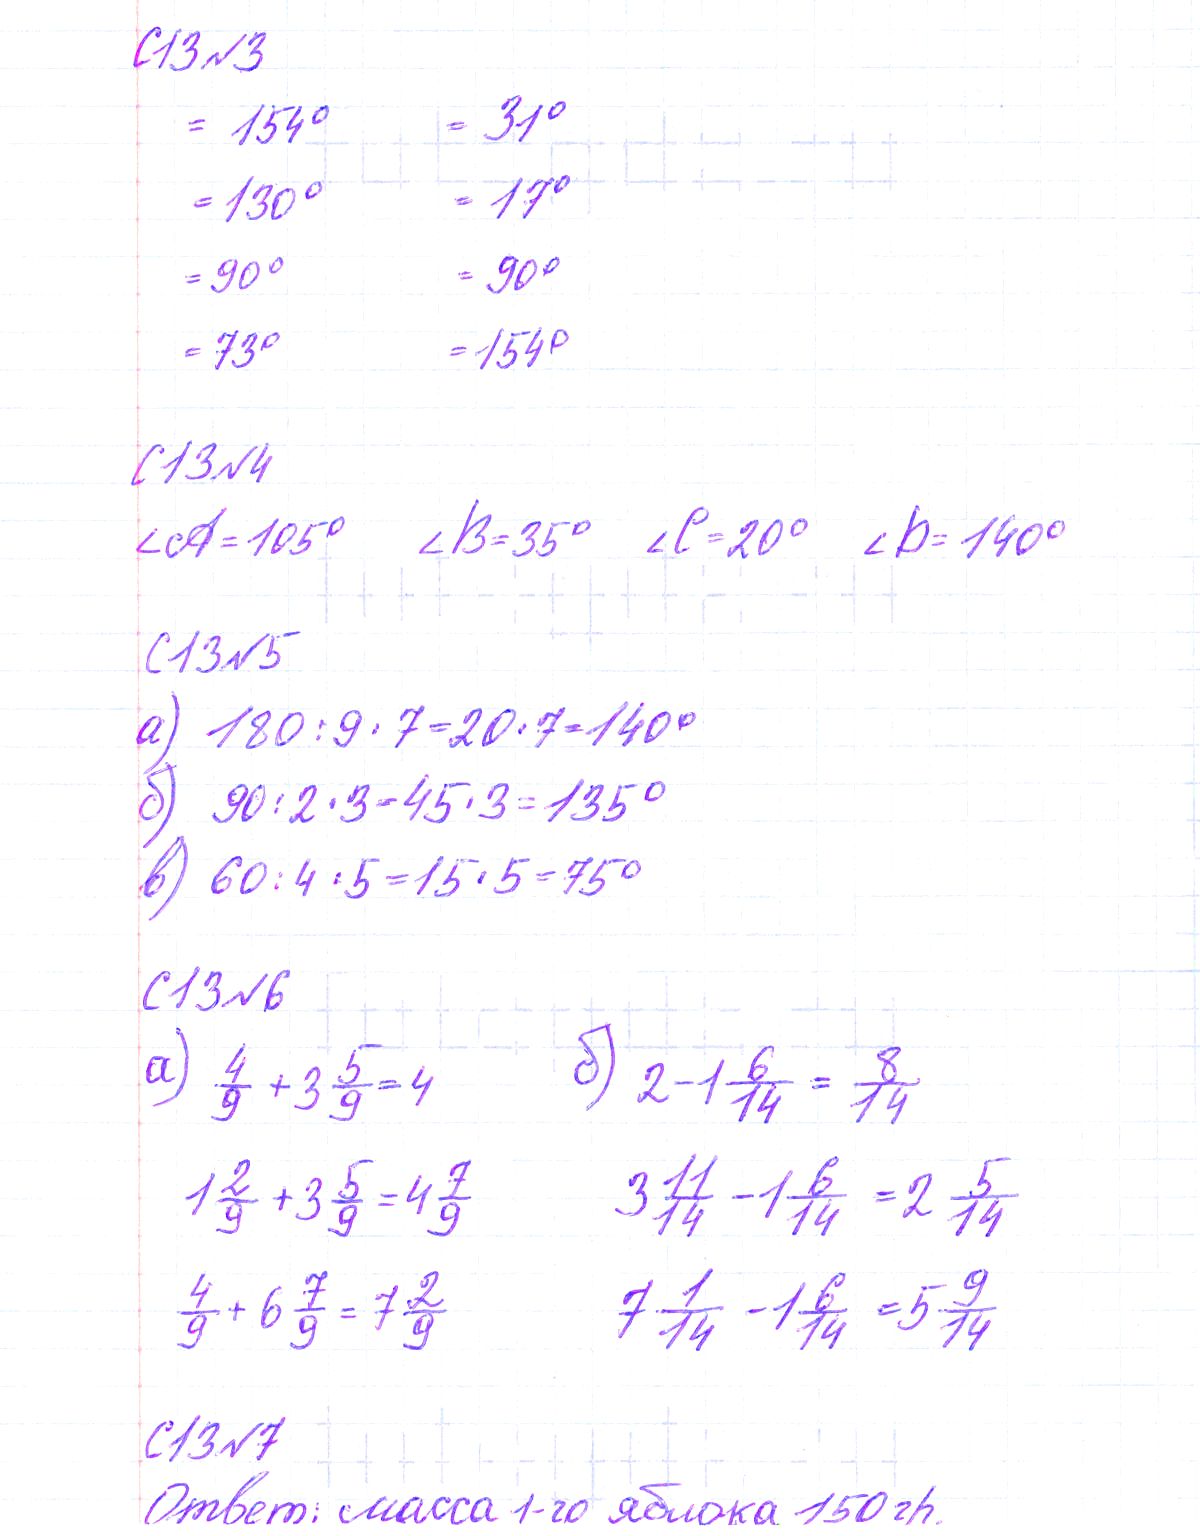 С13№3
= 154° = 31°
= 130° = 17°
= 90° = 90°
= 73° = 154°
С13№4
∠A = 105° ∠B = 35° ∠C = 20° ∠D = 140°
С13№5
а) 180 : 9 · 7 = 20 · 7 = 140°
б) 90 : 2 · 3 = 45 · 3 = 135°
в) 60 : 4 · 5 = 15 · 5 = 75°
С13№6
а) 4/9 + 3 5/9 = 4 б) 2 - 1 6/14 = 8/14
1 2/9 + 3 5/9 = 4 7/9 3 11/14 - 1 6/14 = 2 5/14
4/9 + 6 7/9 = 7 2/9 7 1/14 - 1 6/14 = 5 9/14
С13№7
Ответ: масса 1-го яблока 150 гр.